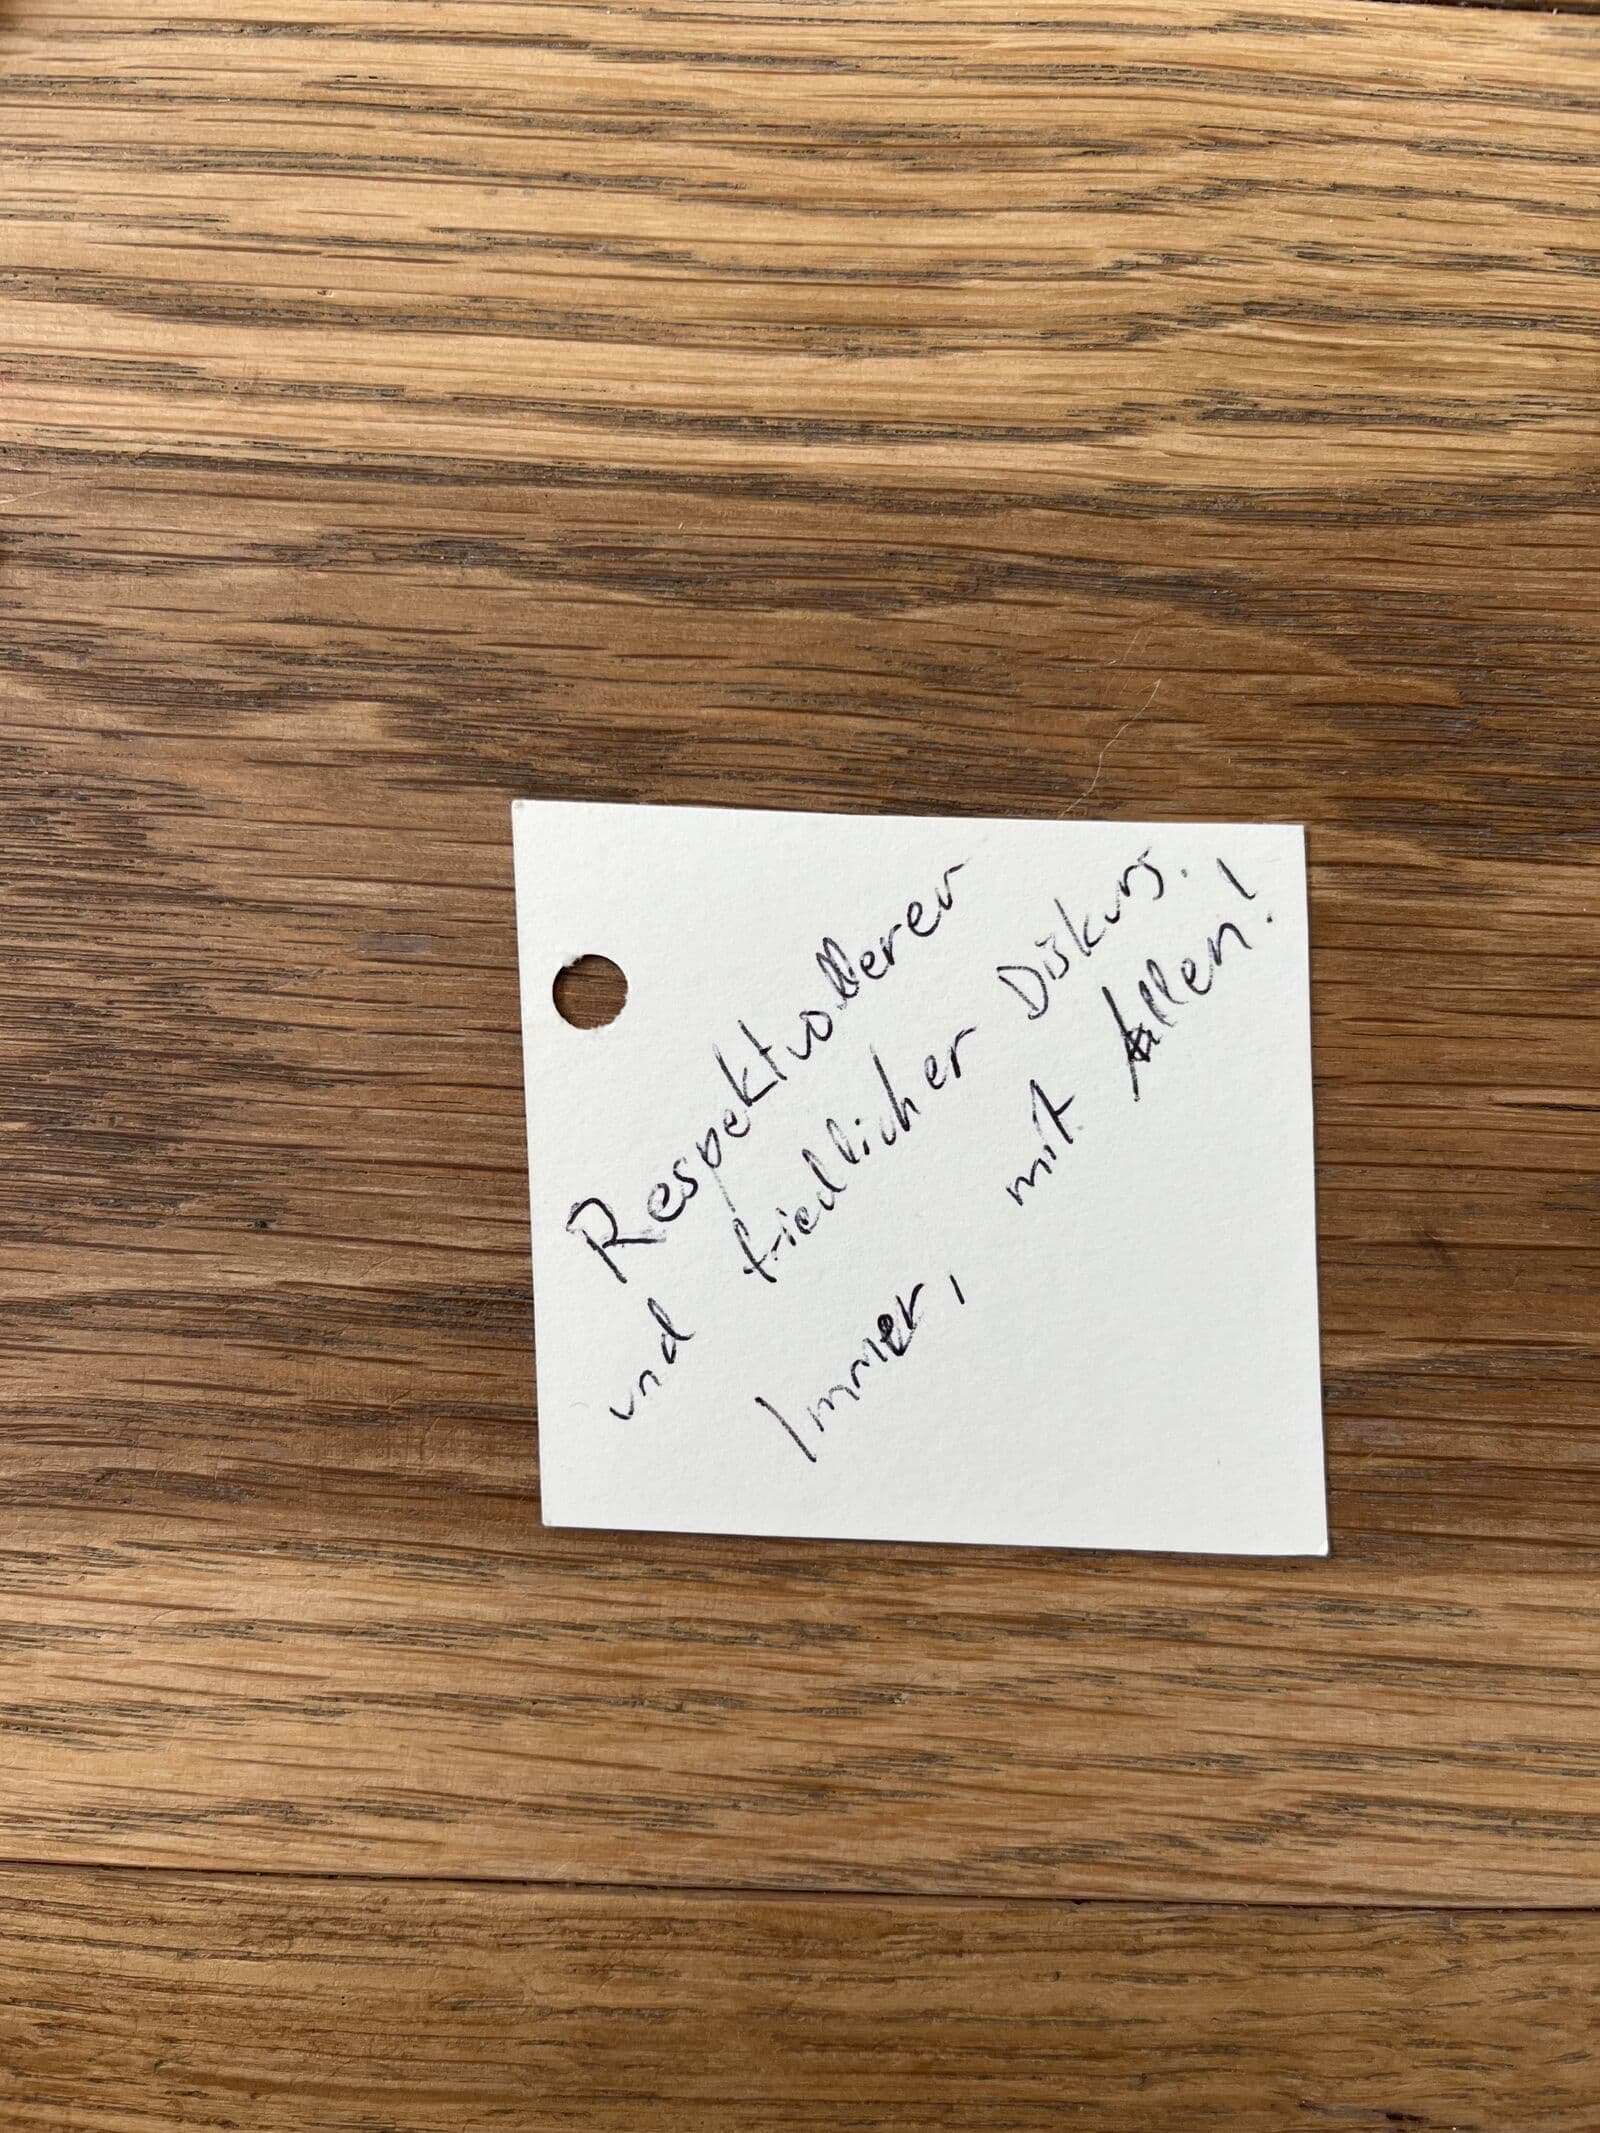 Respektvollerer
und friedlicher Diskurs.
Immer, mit Allen!